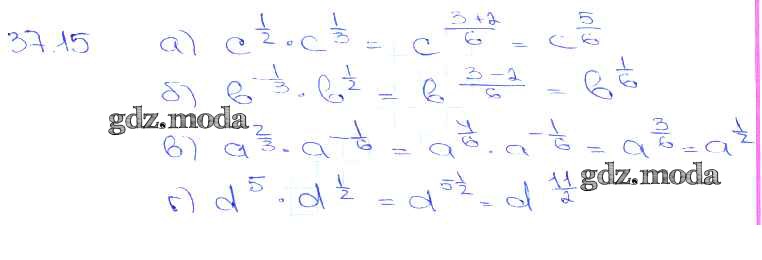 37.15 а) c^{1/2} · c^{1/3} = c^{(3+2)/6} = c^{5/6}
б) b^{-1/3} · b^{1/2} = b^{(3-2)/6} = b^{1/6}
gdz.moda
в) a^{2/3} · a^{-1/6} = a^{4/6} · a^{-1/6} = a^{3/6} = a^{1/2}
gdz.moda
г) d^5 · d^{1/2} = d^{5 1/2} = d^{11/2}